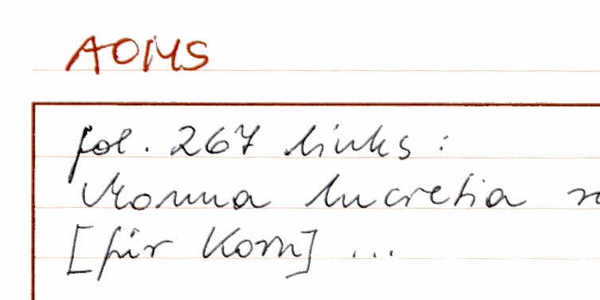 AOMS
fol. 267 links:
Monna Lucretia
[für Korn] ...